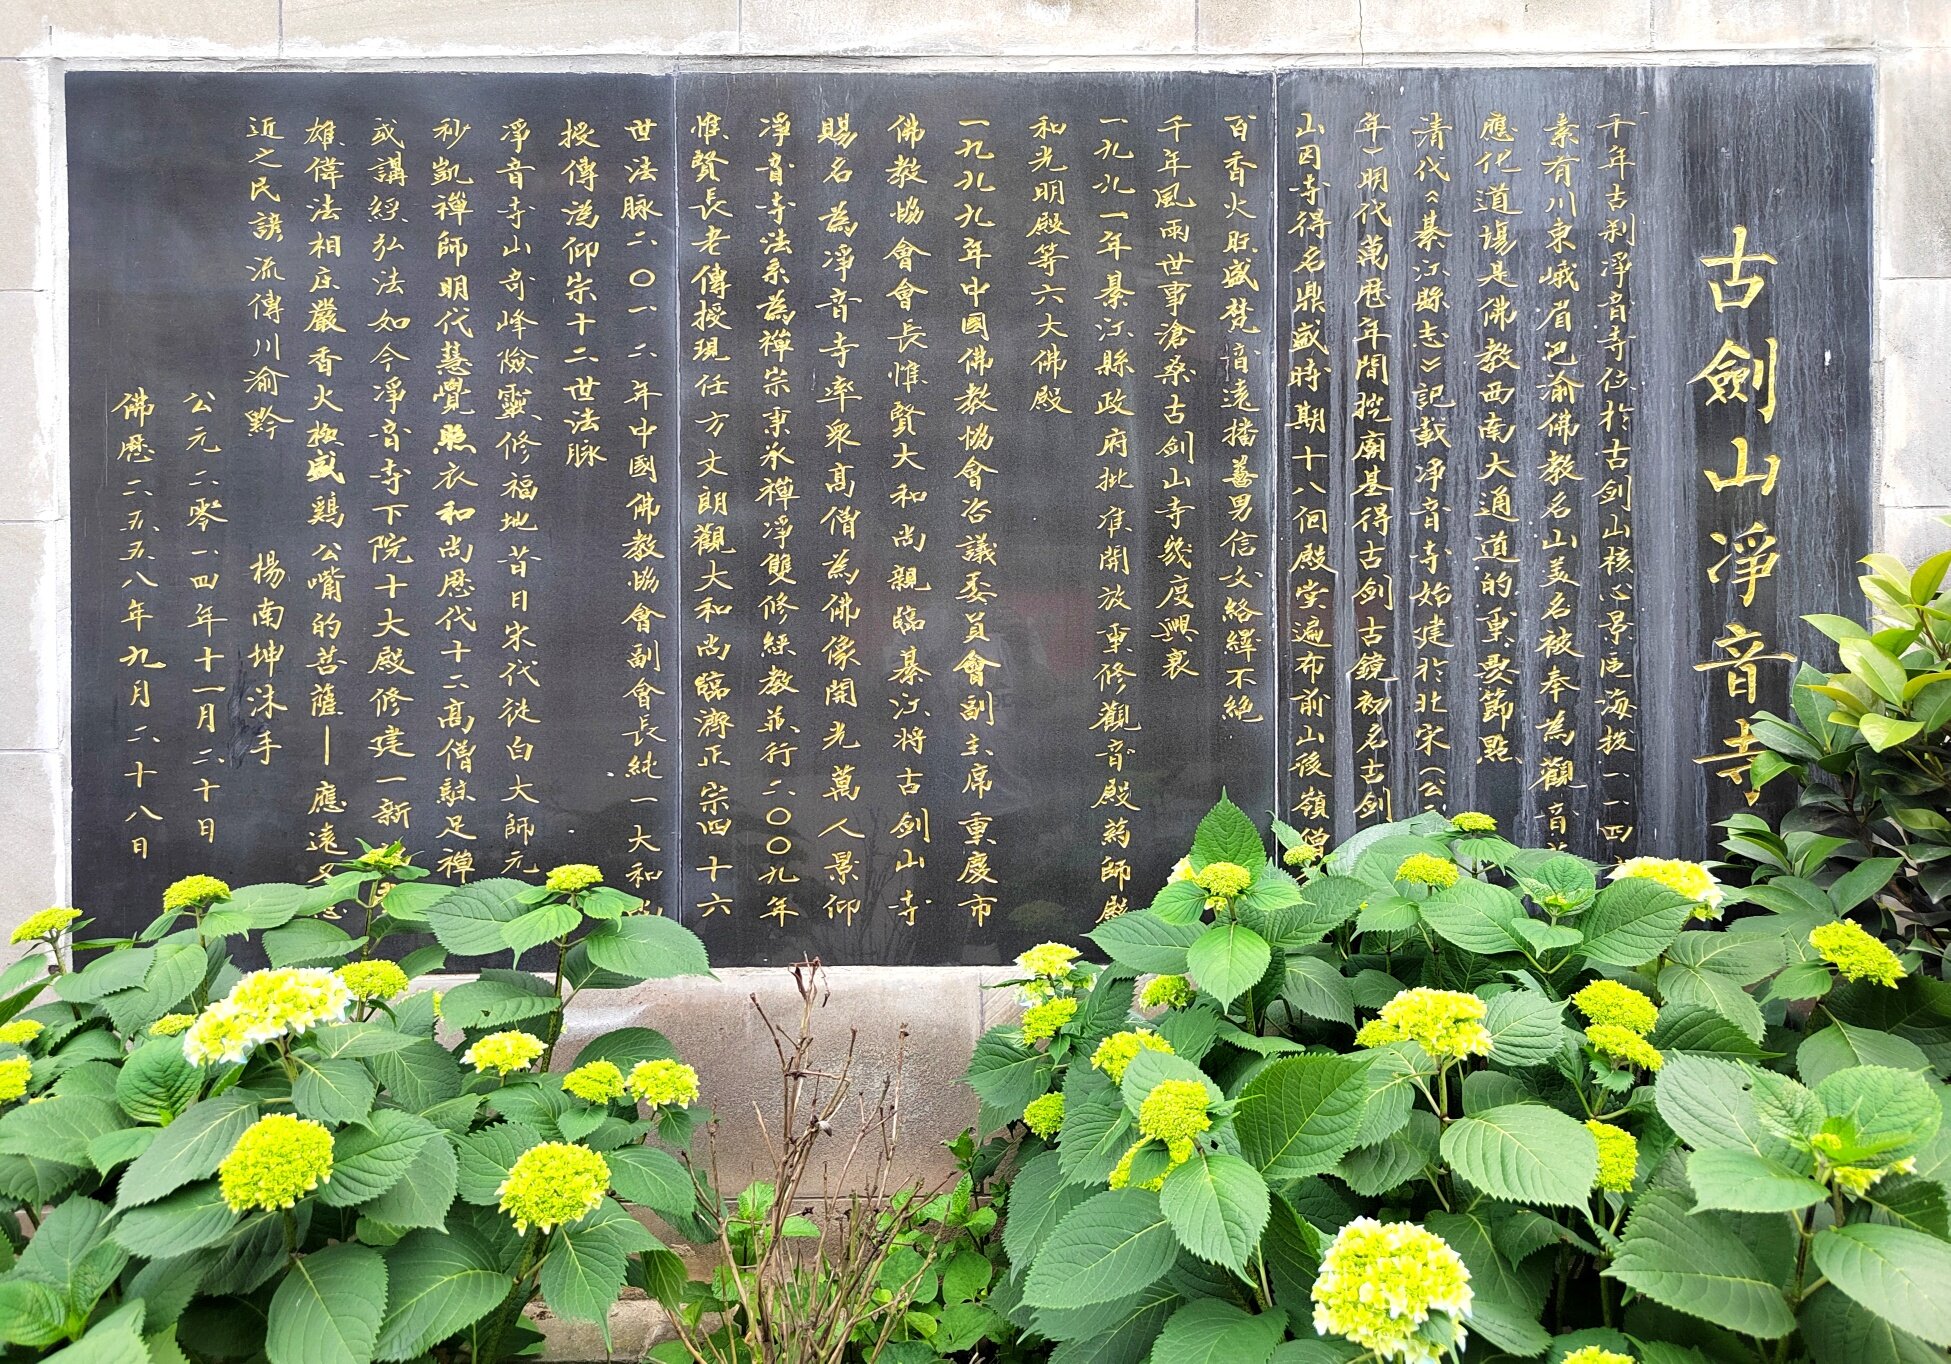 古劍山淨音寺
千年古刹淨音寺位於古剑山核心景区海拔一一四
素有川東峨眉巴渝佛教名山美名被奉為觀音菩
應化道場是佛教西南大通道的重要節點
清代《綦江縣志》記載淨音寺始建於北宋(公元
年)明代萬曆年間挖廟基得古剑古鏡初名古剑
山因寺得名鼎盛時期十八個殿堂遍布前山後嶺僧
百香火旺盛梵音遠播善男信女絡繹不絕
千年風雨世事滄桑古剑山寺幾度興衰
一九九一年綦江縣政府批准開放重修觀音殿葯師殿
和光明殿等六大佛殿
一九九九年中國佛教協會咨議委員會副主席重慶市
佛教協會會長惟賢大和尚親臨綦江将古剑山寺
賜名為淨音寺率衆高僧為佛像開光萬人景仰
淨音寺法系為禪宗秉承禪淨雙修經教並行二〇〇九年
惟賢長老傳授現任方丈朗觀大和尚臨濟正宗四十六
世法脉二〇一二年中國佛教協會副會長純一大和尚
授傳溈仰宗十二世法脉
淨音寺山奇峰險靈修福地昔日宋代從白大師元
秒凱禪師明代慧覺照衣和尚歷代十二高僧駐足禪
或講經弘法如今淨音寺下院十大殿修建一新
雄偉法相庄嚴香火極盛鷄公嘴的菩薩—應遠不應
近之民諺流傳川渝黔
楊南坤沐手
公元二零一四年十一月二十日
佛歷二五五八年九月二十八日